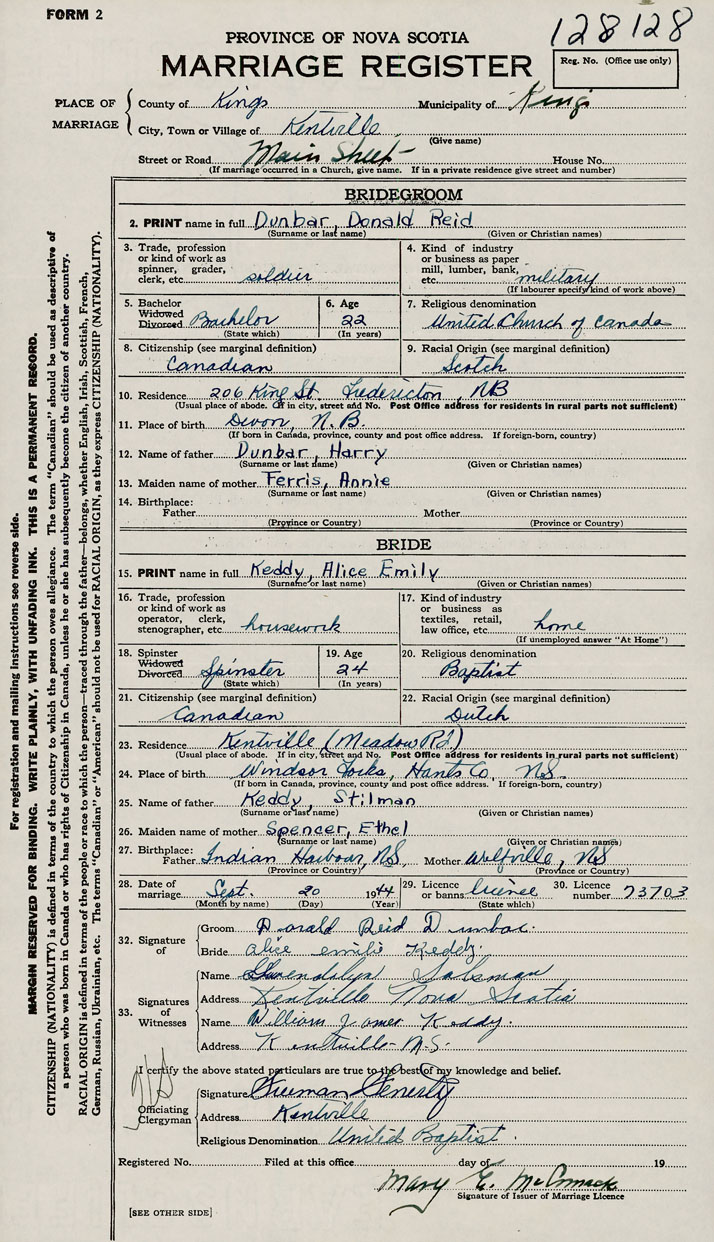 FORM 2
128128
PROVINCE OF NOVA SCOTIA
MARRIAGE REGISTER
Reg. No. (Office use only)
PLACE OF MARRIAGE
County of Kings Municipality of Kings
City, Town or Village of Kentville
(Give name)
Street or Road Main Street House No.
(If marriage occurred in a Church, give name. If in a private residence give street and number)
BRIDEGROOM
2. PRINT name in full Dunbar, Donald Reid
(Surname or last name) (Given or Christian names)
3. Trade, profession or kind of work as spinner, grader, clerk, etc. soldier
4. Kind of industry or business as paper mill, lumber, bank, etc. military
(If labourer specify kind of work above)
5. Bachelor Widowed Divorced Bachelor
(State which)
6. Age 22
(In years)
7. Religious denomination
United Church of Canada
8. Citizenship (see marginal definition)
Canadian
9. Racial Origin (see marginal definition)
Scotch
10. Residence 206 King St. Fredericton, NB
(Usual place of abode. If in city, street and No. Post Office address for residents in rural parts not sufficient)
11. Place of birth Devon, N.B.
(If born in Canada, province, county and post office address. If foreign-born, country)
12. Name of father Dunbar, Harry
(Surname or last name) (Given or Christian names)
13. Maiden name of mother Ferris, Annie
(Surname or last name) (Given or Christian names)
14. Birthplace:
Father Mother
(Province or Country) (Province or Country)
BRIDE
15. PRINT name in full Keddy, Alice Emily
(Surname or last name) (Given or Christian names)
16. Trade, profession or kind of work as operator, clerk, stenographer, etc. housework
17. Kind of industry or business as textiles, retail, law office, etc. home
(If unemployed answer "At Home")
18. Spinster Widowed Divorced Spinster
(State which)
19. Age 24
(In years)
20. Religious denomination
Baptist
21. Citizenship (see marginal definition)
Canadian
22. Racial Origin (see marginal definition)
Dutch
23. Residence Kentville (Meadow Rd)
(Usual place of abode. If in city, street and No. Post Office address for residents in rural parts not sufficient)
24. Place of birth Windsor Forks, Hants Co. NS.
(If born in Canada, province, county and post office address. If foreign-born, country)
25. Name of father Keddy, Stilman
(Surname or last name) (Given or Christian names)
26. Maiden name of mother Spencer, Ethel
(Surname or last name) (Given or Christian names)
27. Birthplace:
Father Indian Harbour, NS Mother Wolfville, NS
(Province or Country) (Province or Country)
28. Date of marriage Sept. 20 1944
(Month by name) (Day) (Year)
29. Licence or banns licence
(State which)
30. Licence number 73703
32. Signature of
Groom Donald Reid Dunbar.
Bride alice emilie Keddy.
33. Signatures of Witnesses
Name Gwendolyn Salsman
Address Kentville Nova Scotia
Name William James Keddy.
Address Kentville N.S.
I certify the above stated particulars are true to the best of my knowledge and belief.
Officiating Clergyman
Signature Freeman Fenerty
Address Kentville
Religious Denomination United Baptist.
Registered No. Filed at this office day of 19
Mary E. McCormack
Signature of Issuer of Marriage Licence
[SEE OTHER SIDE]
For registration and mailing instructions see reverse side.
MARGIN RESERVED FOR BINDING. WRITE PLAINLY, WITH UNFADING INK. THIS IS A PERMANENT RECORD.
CITIZENSHIP (NATIONALITY) is defined in terms of the country to which the person owes allegiance. The term "Canadian" should be used as descriptive of
a person who was born in Canada or who has rights of Citizenship in Canada, unless he or she has subsequently become the citizen of another country.
RACIAL ORIGIN is defined in terms of the people or race to which the person—traced through the father—belongs, whether English, Irish, Scottish, French,
German, Russian, Ukrainian, etc. The terms "Canadian" or "American" should not be used for RACIAL ORIGIN, as they express CITIZENSHIP (NATIONALITY).